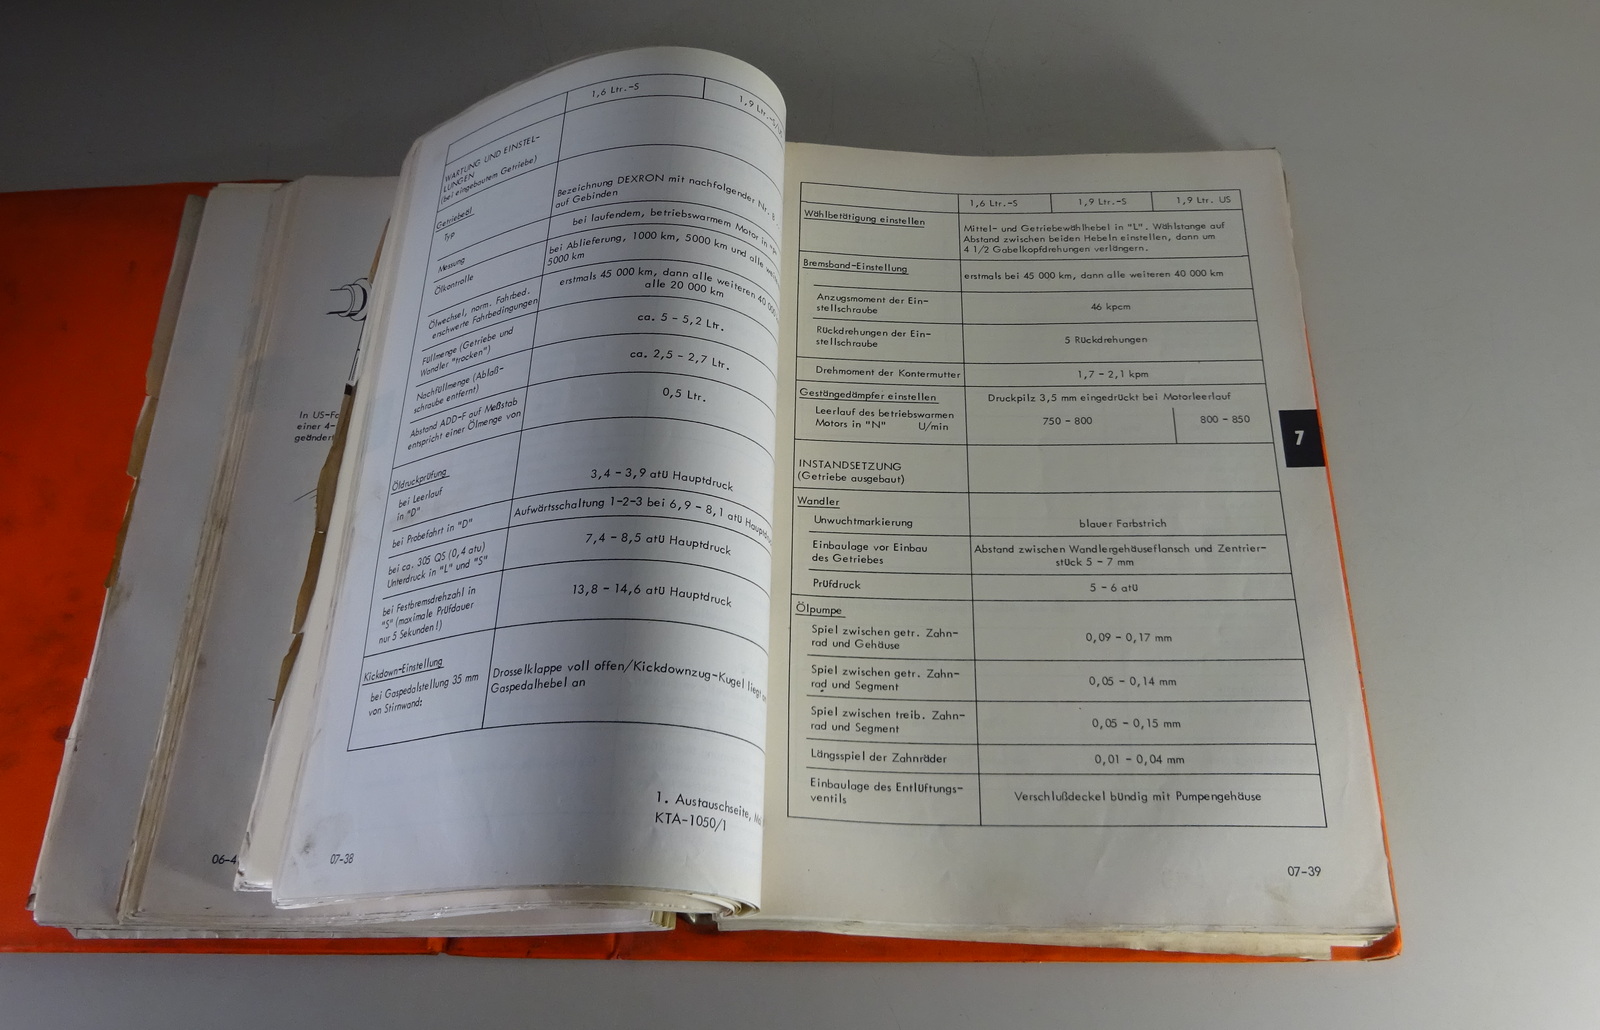 In US-Fa
einer 4-
geänder
06-4
1,6 Ltr.-S
1,9 Ltr.-S/US
WARTUNG UND EINSTEL-
LUNGEN
(bei eingebautem Getriebe)
Getriebeöl
Typ
Bezeichnung DEXRON mit nachfolgender Nr. B
auf Gebinden
Messung
bei laufendem, betriebswarmem Motor in
Ölkontrolle
bei Ablieferung, 1000 km, 5000 km und alle
5000 km
Ölwechsel, norm. Fahrbed.
erschwerte Fahrbedingungen
erstmals 45 000 km, dann alle weiteren 40 000
alle 20 000 km
Füllmenge (Getriebe und
Wandler "trocken")
ca. 5 - 5,2 Ltr.
Nachfüllmenge (Ablaß-
schraube entfernt)
ca. 2,5 - 2,7 Ltr.
Abstand ADD-F auf Meßstab
entspricht einer Ölmenge von
0,5 Ltr.
Öldruckprüfung
bei Leerlauf
in "D"
3,4 - 3,9 atü Hauptdruck
bei Probefahrt in "D"
Aufwärtsschaltung 1-2-3 bei 6,9 - 8,1 atü Hauptdru
bei ca. 305 QS (0,4 atu)
Unterdruck in "L" und "S"
7,4 - 8,5 atü Hauptdruck
bei Festbremsdrehzahl in
"S" (maximale Prüfdauer
nur 5 Sekunden!)
13,8 - 14,6 atü Hauptdruck
Kickdown-Einstellung
bei Gaspedalstellung 35 mm
von Stirnwand:
Drosselklappe voll offen/Kickdownzug-Kugel liegt
Gaspedalhebel an
1. Austauschseite,
KTA-1050/1
07-38
1,6 Ltr.-S
1,9 Ltr.-S
1,9 Ltr. US
Wählbetätigung einstellen
Mittel- und Getriebewählhebel in "L". Wählstange auf
Abstand zwischen beiden Hebeln einstellen, dann um
4 1/2 Gabelkopfdrehungen verlängern.
Bremsband-Einstellung
erstmals bei 45 000 km, dann alle weiteren 40 000 km
Anzugsmoment der Ein-
stellschraube
46 kpcm
Rückdrehungen der Ein-
stellschraube
5 Rückdrehungen
Drehmoment der Kontermutter
1,7 - 2,1 kpm
Gestängedämpfer einstellen
Druckpilz 3,5 mm eingedrückt bei Motorleerlauf
Leerlauf des betriebswarmen
Motors in "N" U/min
750 - 800
800 - 850
7
INSTANDSETZUNG
(Getriebe ausgebaut)
Wandler
Unwuchtmarkierung
blauer Farbstrich
Einbaulage vor Einbau
des Getriebes
Abstand zwischen Wandlergehäuseflansch und Zentrier-
stück 5 - 7 mm
Prüfdruck
5 - 6 atü
Ölpumpe
Spiel zwischen getr. Zahn-
rad und Gehäuse
0,09 - 0,17 mm
Spiel zwischen getr. Zahn-
rad und Segment
0,05 - 0,14 mm
Spiel zwischen treib. Zahn-
rad und Segment
0,05 - 0,15 mm
Längsspiel der Zahnräder
0,01 - 0,04 mm
Einbaulage des Entlüftungs-
ventils
Verschlußdeckel bündig mit Pumpengehäuse
07-39